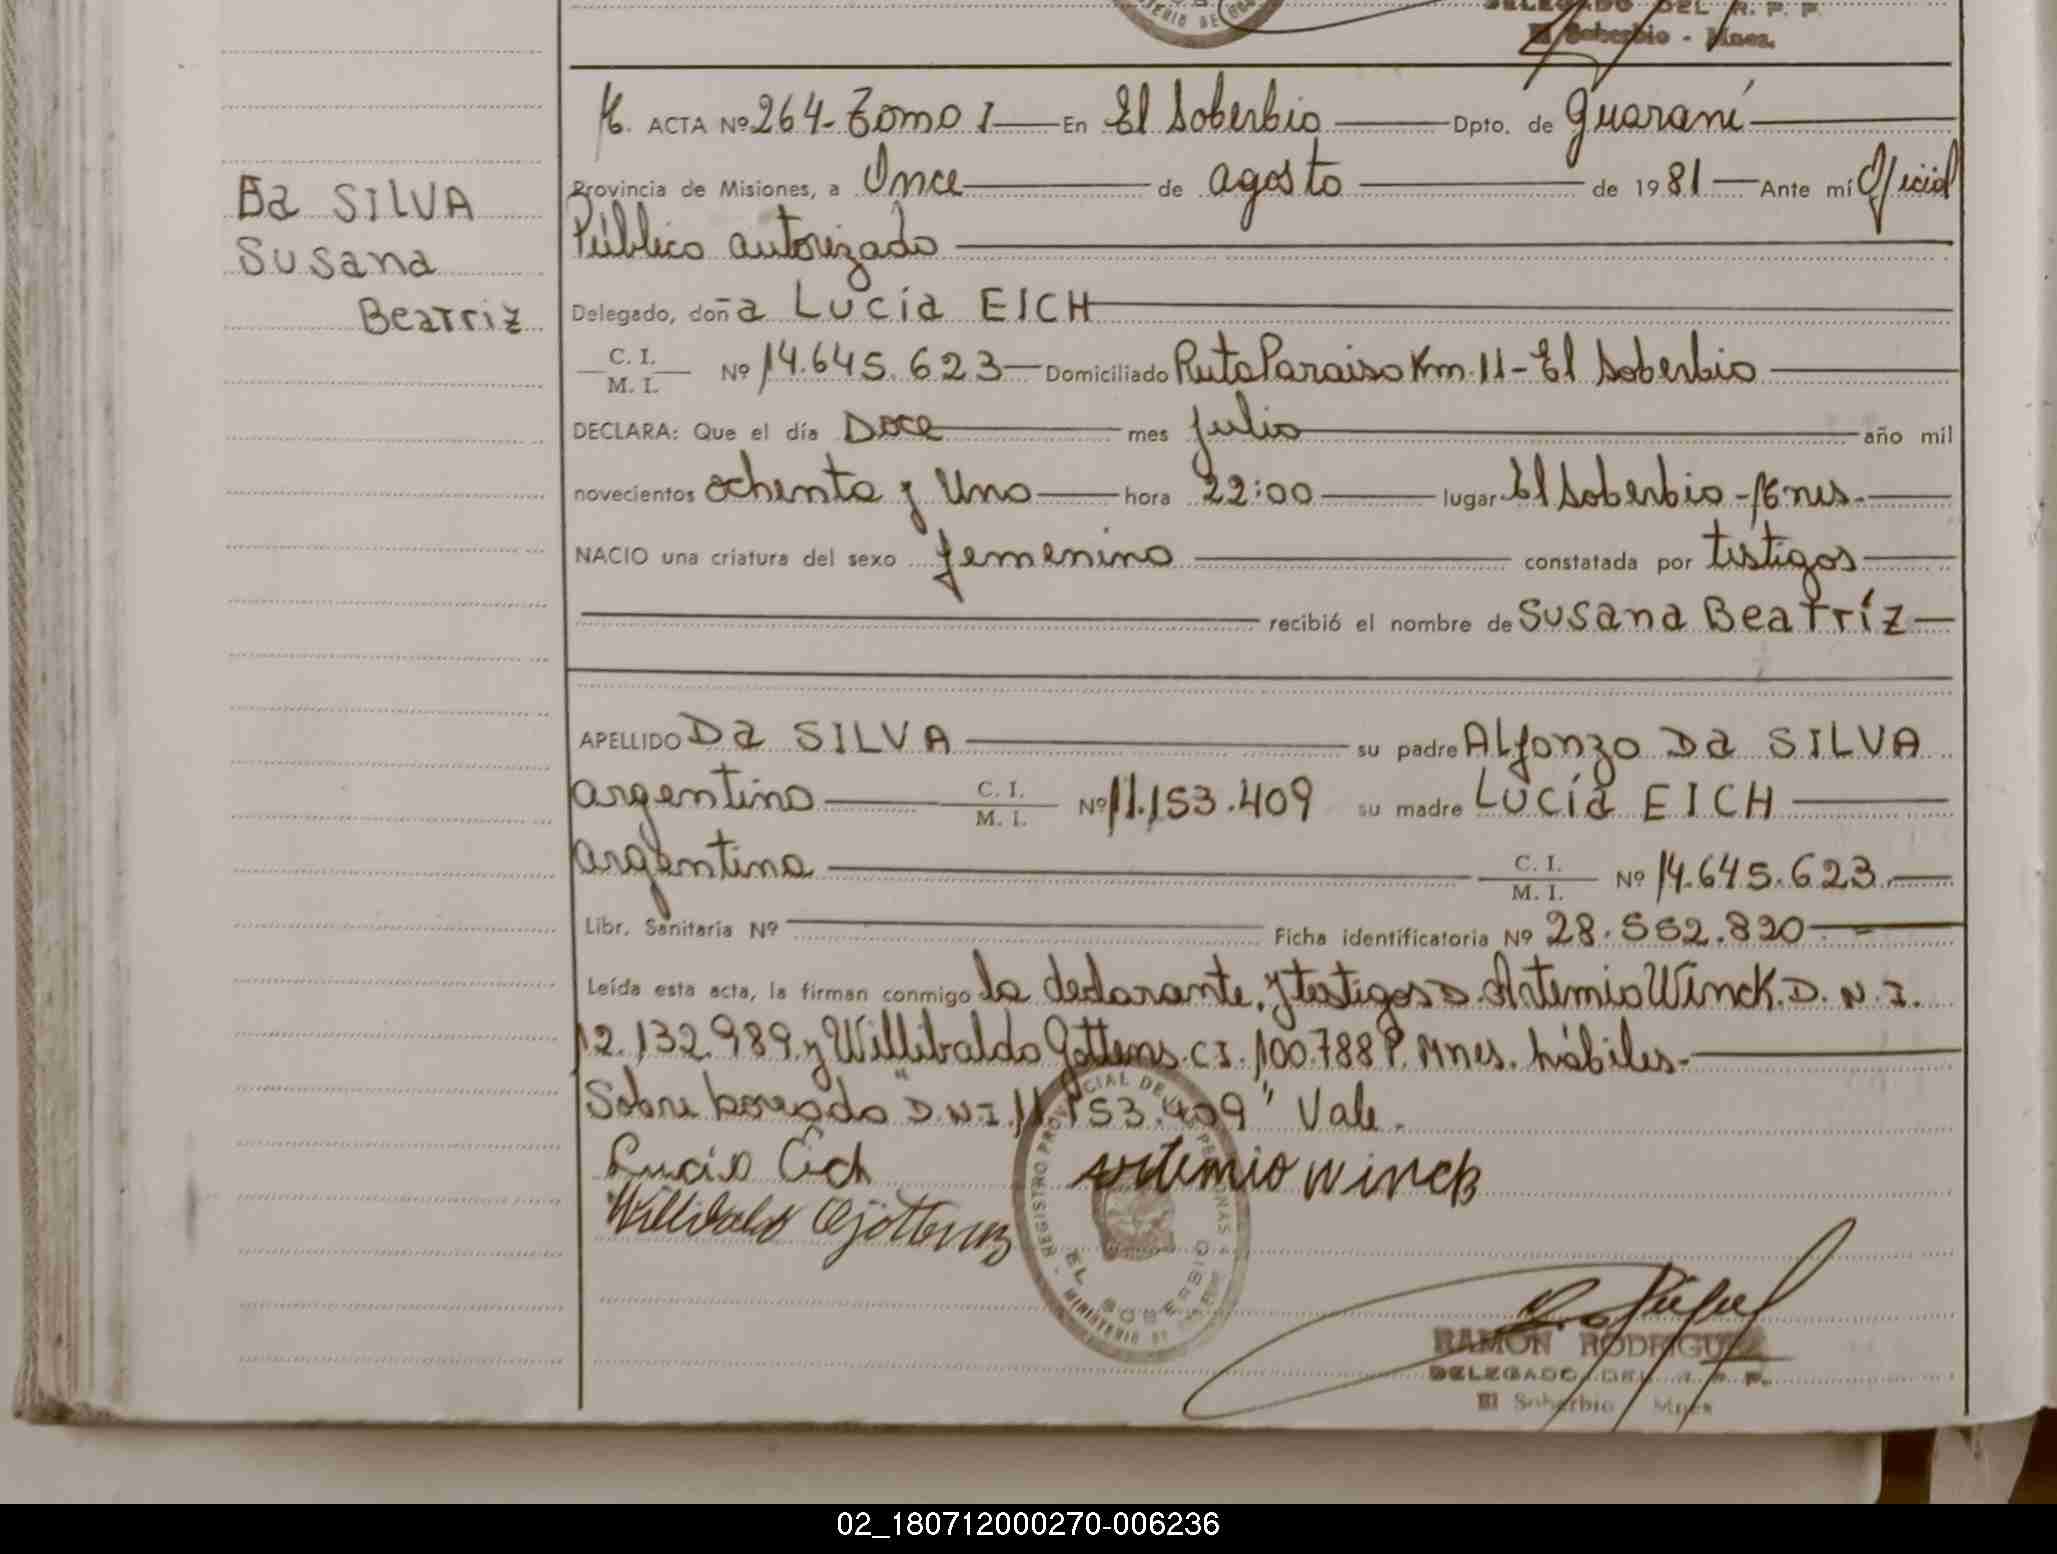 DELEGADO DEL R. P. P.
El Soberbio - Mnes.
ACTA Nº 264 - Tomo I En El Soberbio Dpto. de Guaraní
Provincia de Misiones, a Once de agosto de 1981 Ante mí Oficial
Público autorizado
Da SILVA
Susana
Beatriz
Delegado, doña Lucía EICH
C. I.
M. I. Nº 14.645.623 Domiciliado Ruta Paraiso Km. 11 - El Soberbio
DECLARA: Que el día Doce mes julio año mil
novecientos ochenta y Uno hora 22:00 lugar El Soberbio - Mnes -
NACIO una criatura del sexo femenino constatada por testigos
recibió el nombre de Susana Beatríz
APELLIDO Da SILVA su padre Alfonzo Da SILVA
argentino C. I.
M. I. Nº 11.153.409 su madre Lucía EICH
argentina C. I.
M. I. Nº 14.645.623
Libr. Sanitaria Nº Ficha identificatoria Nº 28.552.820
Leída esta acta, la firman conmigo la declarante. y testigos D. Artemio Winck. D. N. I.
12.132.989. y Willibaldo Gottems. C I. 100.788 P. Mnes. hábiles -
Sobre borrado "D.N.I. 11.153.409" Vale.
Lucia Eich Artemio Winck
REGISTRO PROVINCIAL DE LAS PERSONAS
EL SOBERBIO
MINISTERIO DE
RAMON RODRIGUEZ
DELEGADO DEL R. P. P.
El Soberbio Mnes
02_180712000270-006236